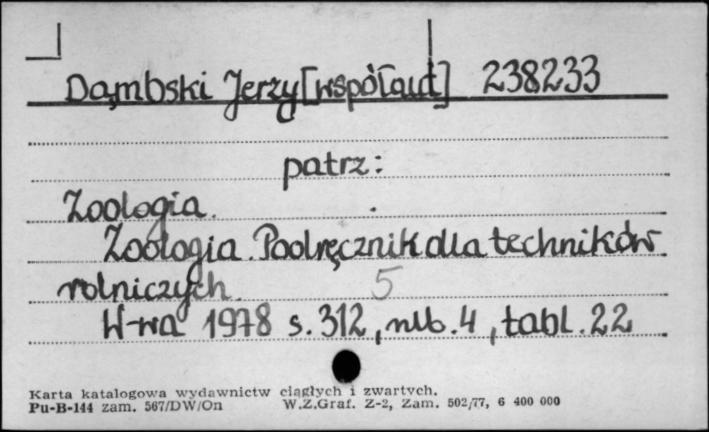 Dąmbski Jerzy [współaut] 238233
patrz:
Zoologia.
Zoologia. Podręcznik dla techników
rolniczych. 5
W-wa 1978 s. 312, nlb. 4, tabl. 22
Karta katalogowa wydawnictw ciągłych i zwartych.
Pu-B-144 zam. 567/DW/On W.Z.Graf. Z-2, Zam. 502/77, 6 400 000